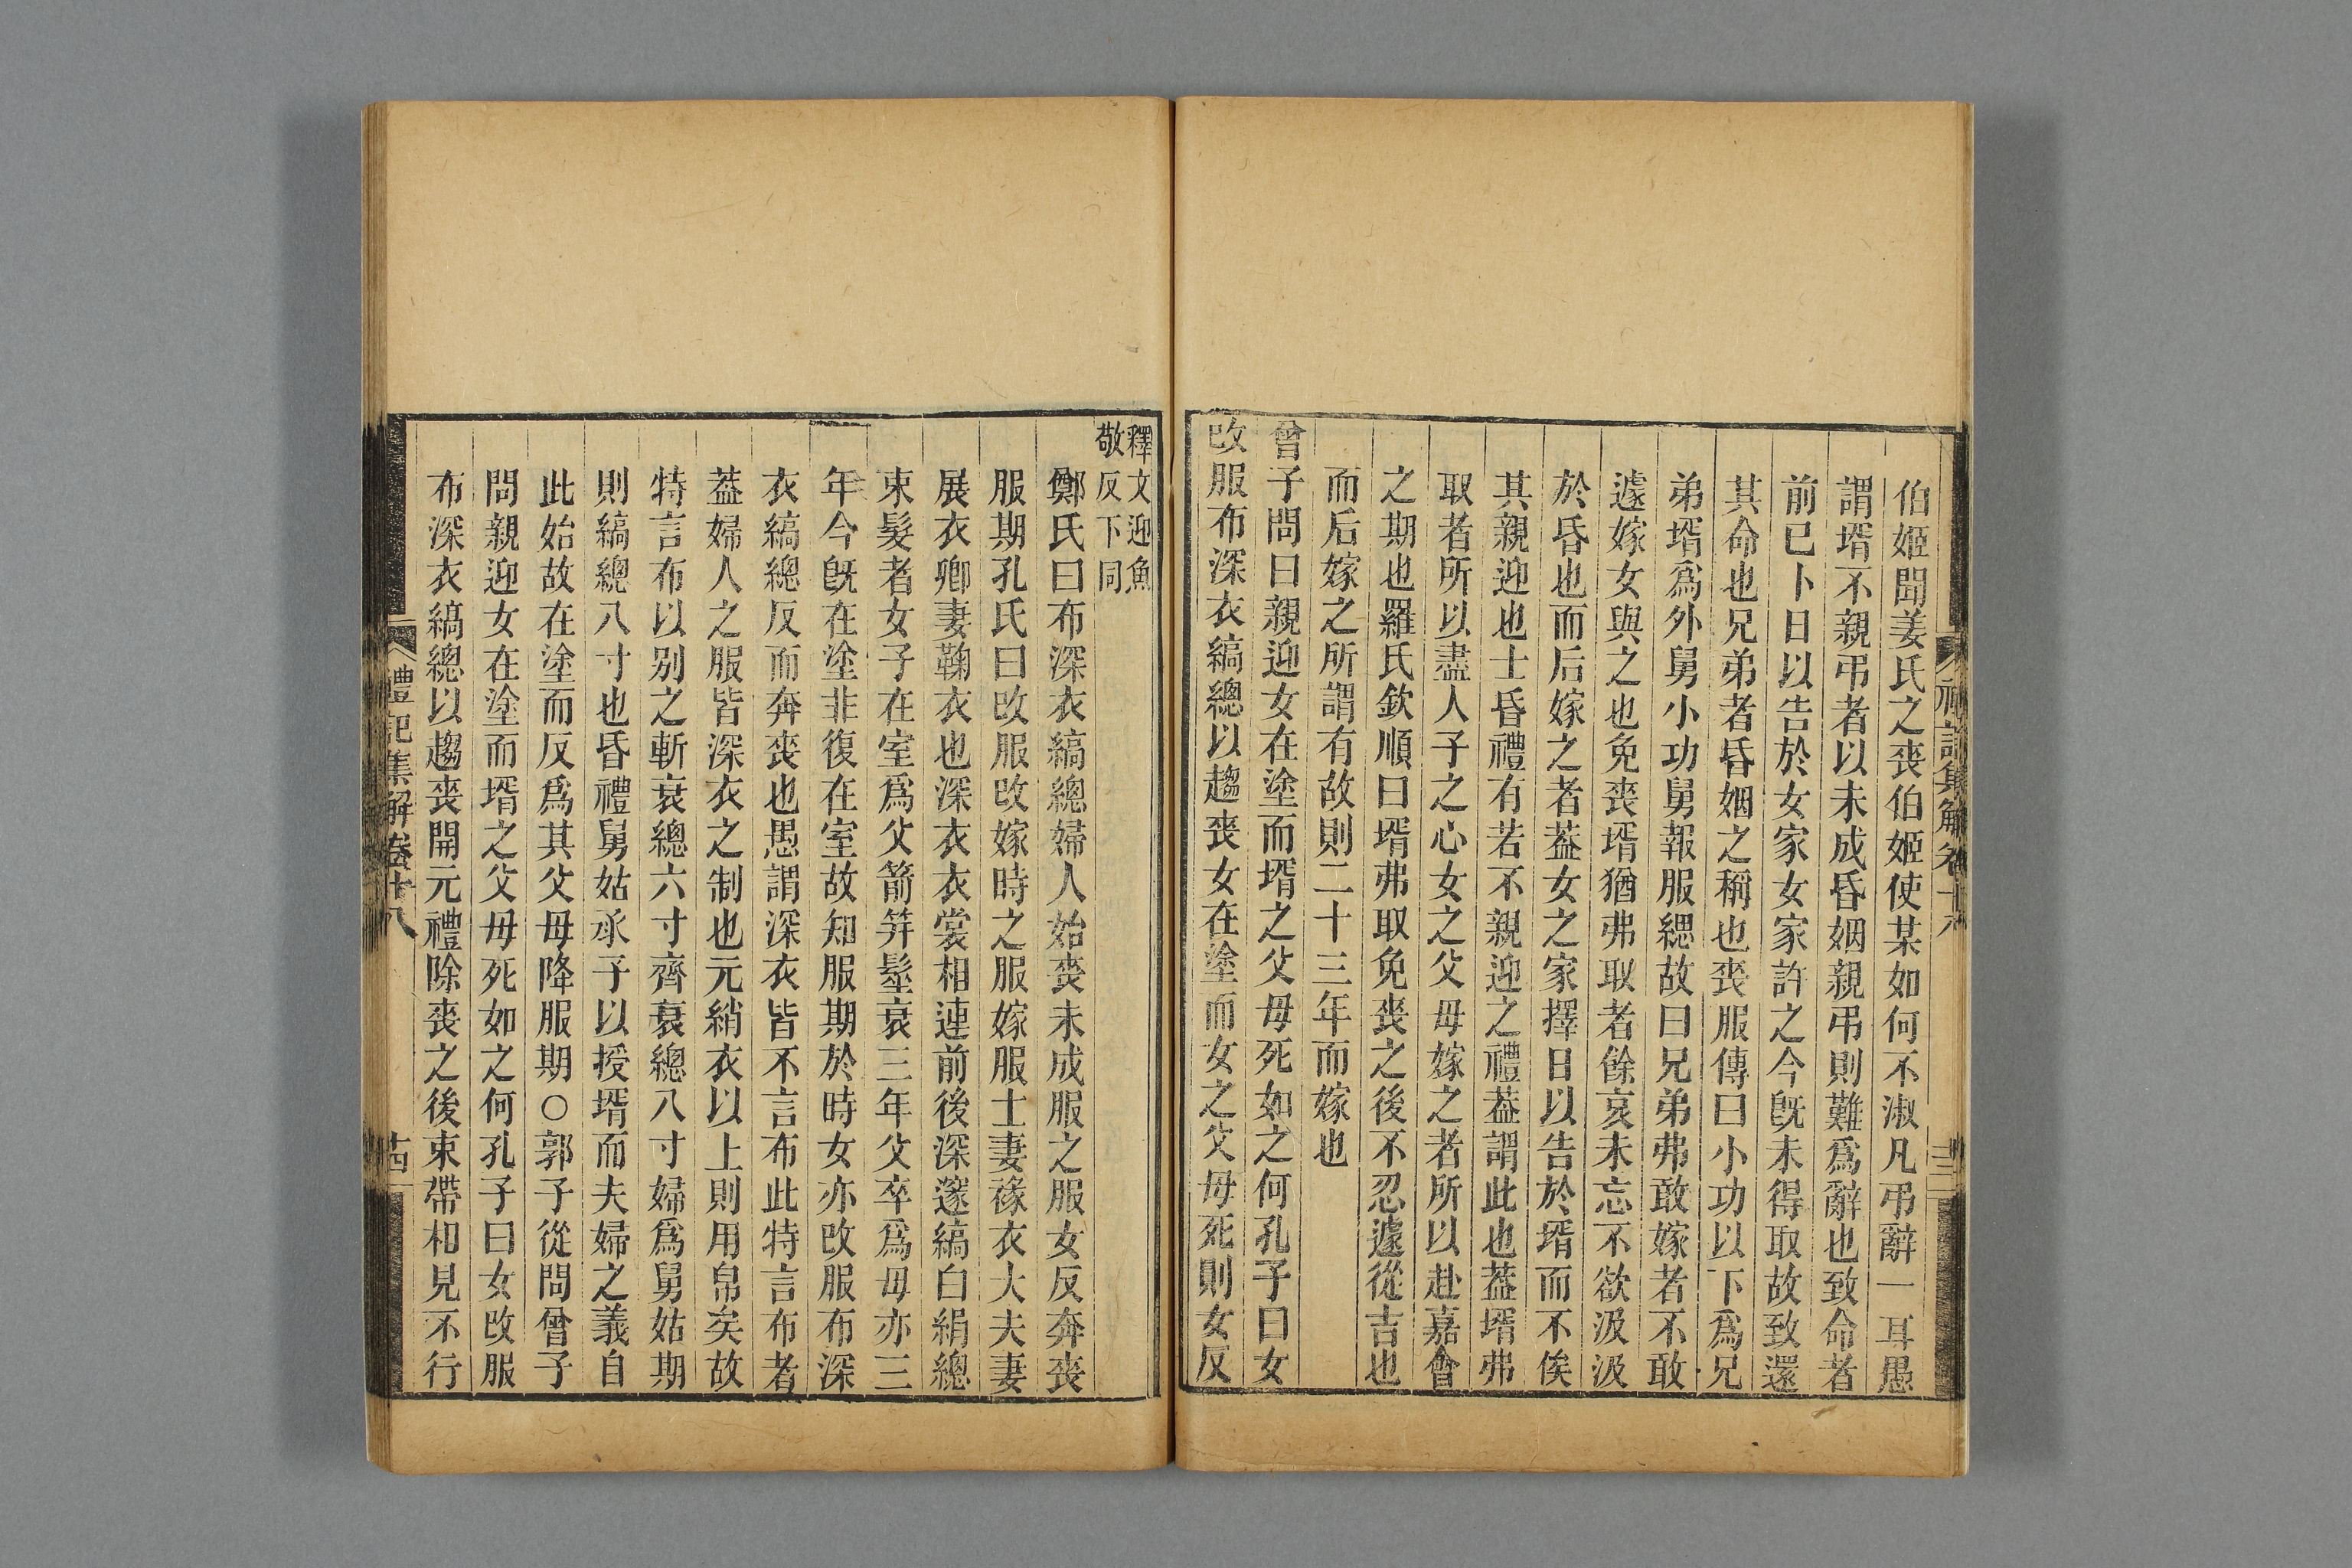 禮記集解卷十八
十三
伯姬聞姜氏之喪伯姬使某如何不淑凡弔辭一耳愚
謂壻不親弔者以未成昏姻親弔則難爲辭也致命者
前已卜日以告於女家女家許之今旣未得取故致還
其命也兄弟者昏姻之稱也喪服傳曰小功以下爲兄
弟壻爲外舅小功舅報服緦故曰兄弟弗敢嫁者不敢
遽嫁女與之也免喪壻猶弗取者餘哀未忘不欲汲汲
於昏也而后嫁之者葢女之家擇日以告於壻而不俟
其親迎也士昏禮有若不親迎之禮葢謂此也葢壻弗
取者所以盡人子之心女之父母嫁之者所以赴嘉會
之期也羅氏欽順曰壻弗取免喪之後不忍遽從吉也
而后嫁之所謂有故則二十三年而嫁也
曾子問曰親迎女在塗而壻之父母死如之何孔子曰女
改服布深衣縞總以趨喪女在塗而女之父母死則女反
釋文迎魚
敬反下同
鄭氏曰布深衣縞總婦人始喪未成服之服女反奔喪
服期孔氏曰改服改嫁時之服嫁服士妻褖衣大夫妻
展衣卿妻鞠衣也深衣衣裳相連前後深邃縞白絹總
束髮者女子在室爲父箭筓髽衰三年父卒爲母亦三
年今旣在塗非復在室故知服期於時女亦改服布深
衣縞總反而奔喪也愚謂深衣皆不言布此特言布者
葢婦人之服皆深衣之制也元綃衣以上則用帛矣故
特言布以别之斬衰總六寸齊衰總八寸婦爲舅姑期
則縞總八寸也昏禮舅姑承子以授壻而夫婦之義自
此始故在塗而反爲其父母降服期○郭子從問曾子
問親迎女在塗而壻之父母死如之何孔子曰女改服
布深衣縞總以趨喪開元禮除喪之後束帶相見不行
禮記集解卷十八
十四